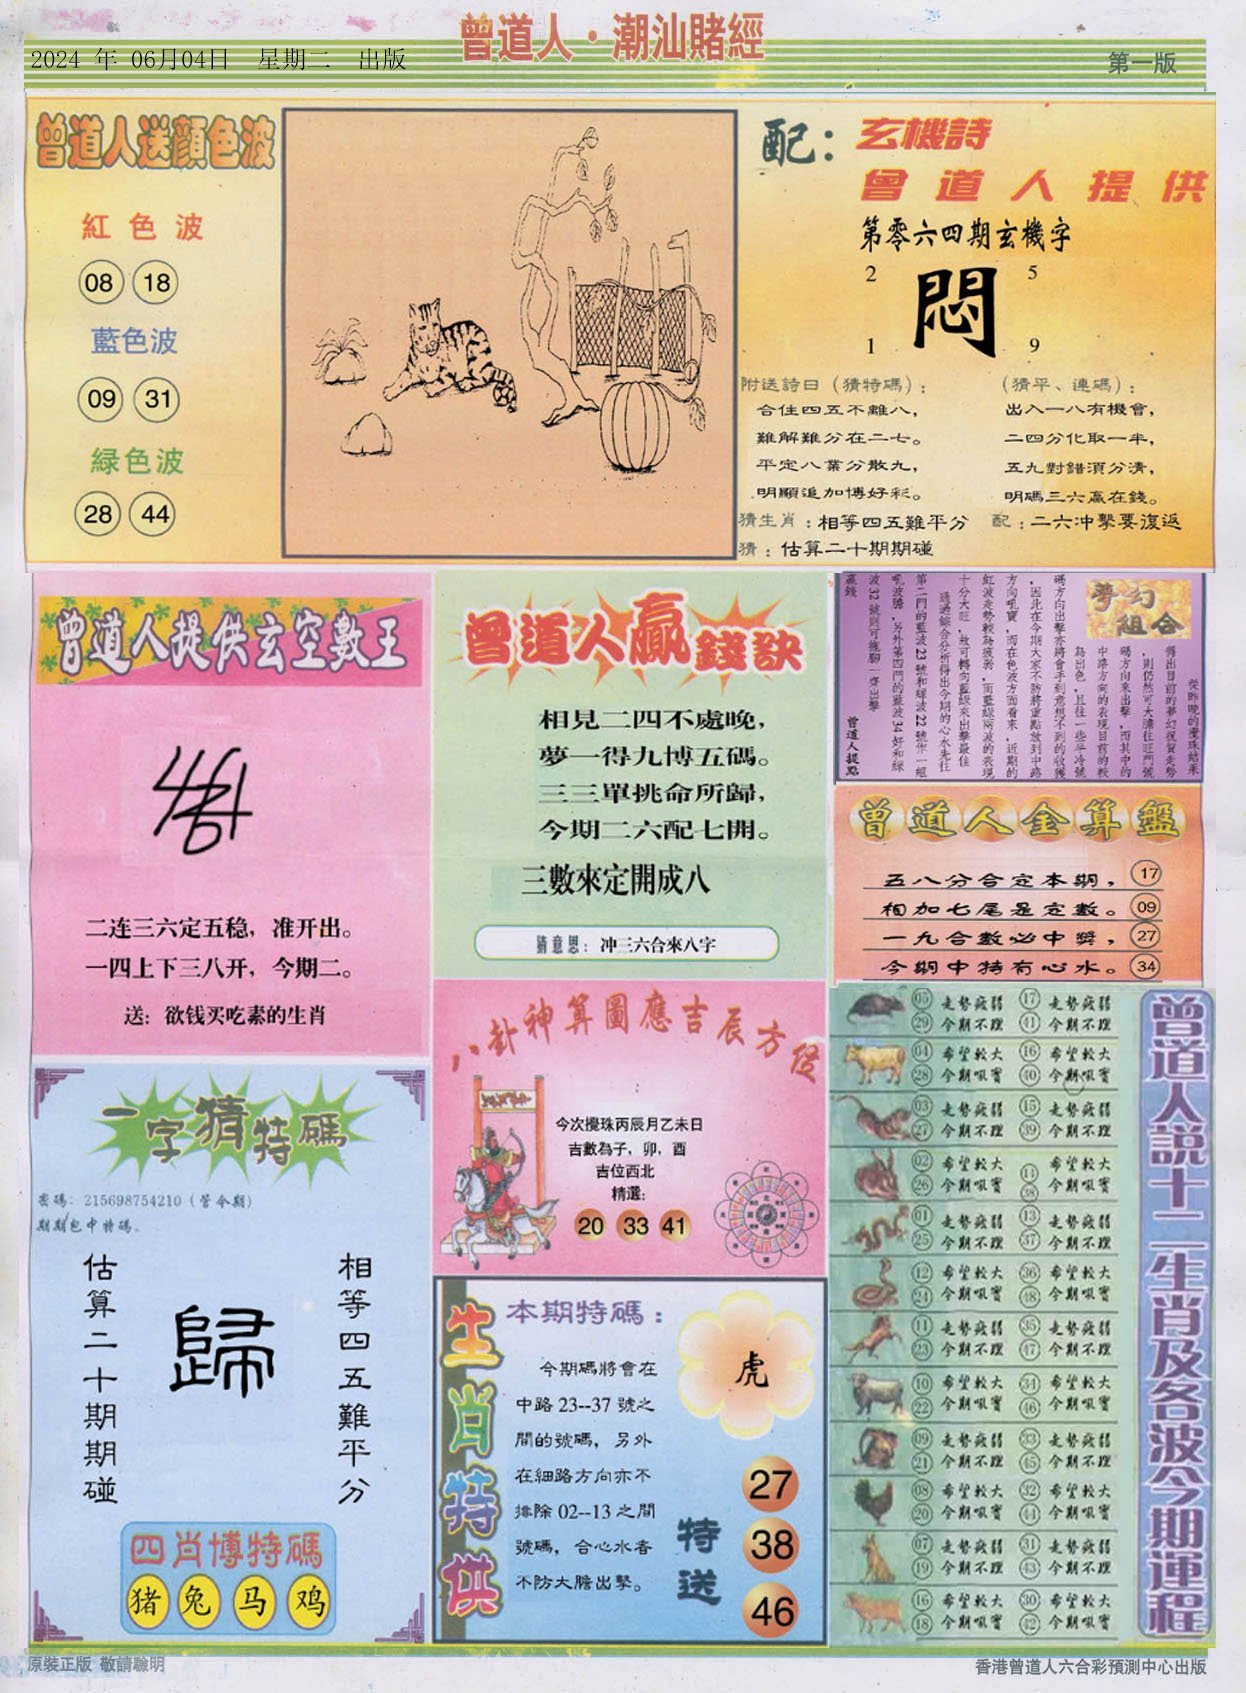 曾道人·潮汕賭經
2024 年 06月04日 星期二 出版
第一版
曾道人送顏色波
紅色波
08 18
藍色波
09 31
緑色波
28 44
配：玄機詩
曾道人提供
第零六四期玄機字
2 5
悶
1 9
附送詩曰（猜特碼）：
合住四五不離八，
難解難分在二七。
平定八業分散九，
明顯追加博好彩。
（猜平、連碼）：
出入一八有機會，
二四分化取一半，
五九對錯須分清，
明碼三六贏在錢。
猜生肖：相等四五難平分 配：二六冲擊要復返
猜：估算二十期期碰
曾道人提供玄空數王
二连三六定五稳，准开出。
一四上下三八开，今期二。
送：欲钱买吃素的生肖
曾道人贏錢訣
相見二四不處晚，
夢一得九博五碼。
三三單挑命所歸，
今期二六配七開。
三數來定開成八
猜意思：冲三六合來八字
夢幻組合
從昨晚的攪珠結果
得出目前的夢幻祝賀走勢
，則仍然可大膽往旺門號
碼方向來出擊，而其中的
中路方向的表現目前的較
為出色，且往一些半冷號
碼方向出擊亦將會手到意想不到的收獲
，因此在今期大家不防將重點放到中路
方向吼寶，而在色波方面看來，近期的
紅波走勢較為疲弱，而藍綠兩波的表現
十分大旺，故可轉向藍綠來出擊最佳
通過綜合分析得出今期的心水先往
第二門的藍波23號和綠波22號作一組
吼波膽，另外第四門的藍波34好和綠
波32號則可拖腳一齊出擊
贏錢
曾道人提點
曾道人金算盤
五八分合定本期， 17
相加七尾是定數。 09
一九合數必中獎， 27
今期中特有心水。 34
一字猜特碼
密碼：215698754210（管今期）
期期包中特碼。
相等四五難平分
歸
估算二十期期碰
四肖博特碼
猪 兔 马 鸡
八卦神算圖應吉辰方位
今次攪珠丙辰月乙未日
吉數為子，卯，酉
吉位西北
精選：
20 33 41
生肖特供
本期特碼：
今期碼將會在
中路 23--37 號之
間的號碼，另外
在細路方向亦不
排除 02--13 之間
號碼，合心水者
不防大膽出擊。
虎
特送
27
38
46
曾道人說十二生肖及各波今期運程
05 走勢疲弱 17 走勢疲弱
29 今期不理 41 今期不理
04 希望較大 16 希望較大
28 今期吼寶 40 今期吼寶
03 走勢疲弱 15 走勢疲弱
27 今期不理 39 今期不理
02 希望較大 14 希望較大
26 今期吼寶 38 今期吼寶
01 走勢疲弱 13 走勢疲弱
25 今期不理 37 今期不理
12 希望較大 36 希望較大
24 今期吼寶 48 今期吼寶
11 走勢疲弱 35 走勢疲弱
23 今期不理 47 今期不理
10 希望較大 34 希望較大
22 今期吼寶 46 今期吼寶
09 走勢疲弱 33 走勢疲弱
21 今期不理 45 今期不理
08 希望較大 32 希望較大
20 今期吼寶 44 今期吼寶
07 走勢疲弱 31 走勢疲弱
19 今期不理 43 今期不理
16 希望較大 30 希望較大
18 今期吼寶 42 今期吼寶
原裝正版 敬請聰明
香港曾道人六合彩預測中心出版